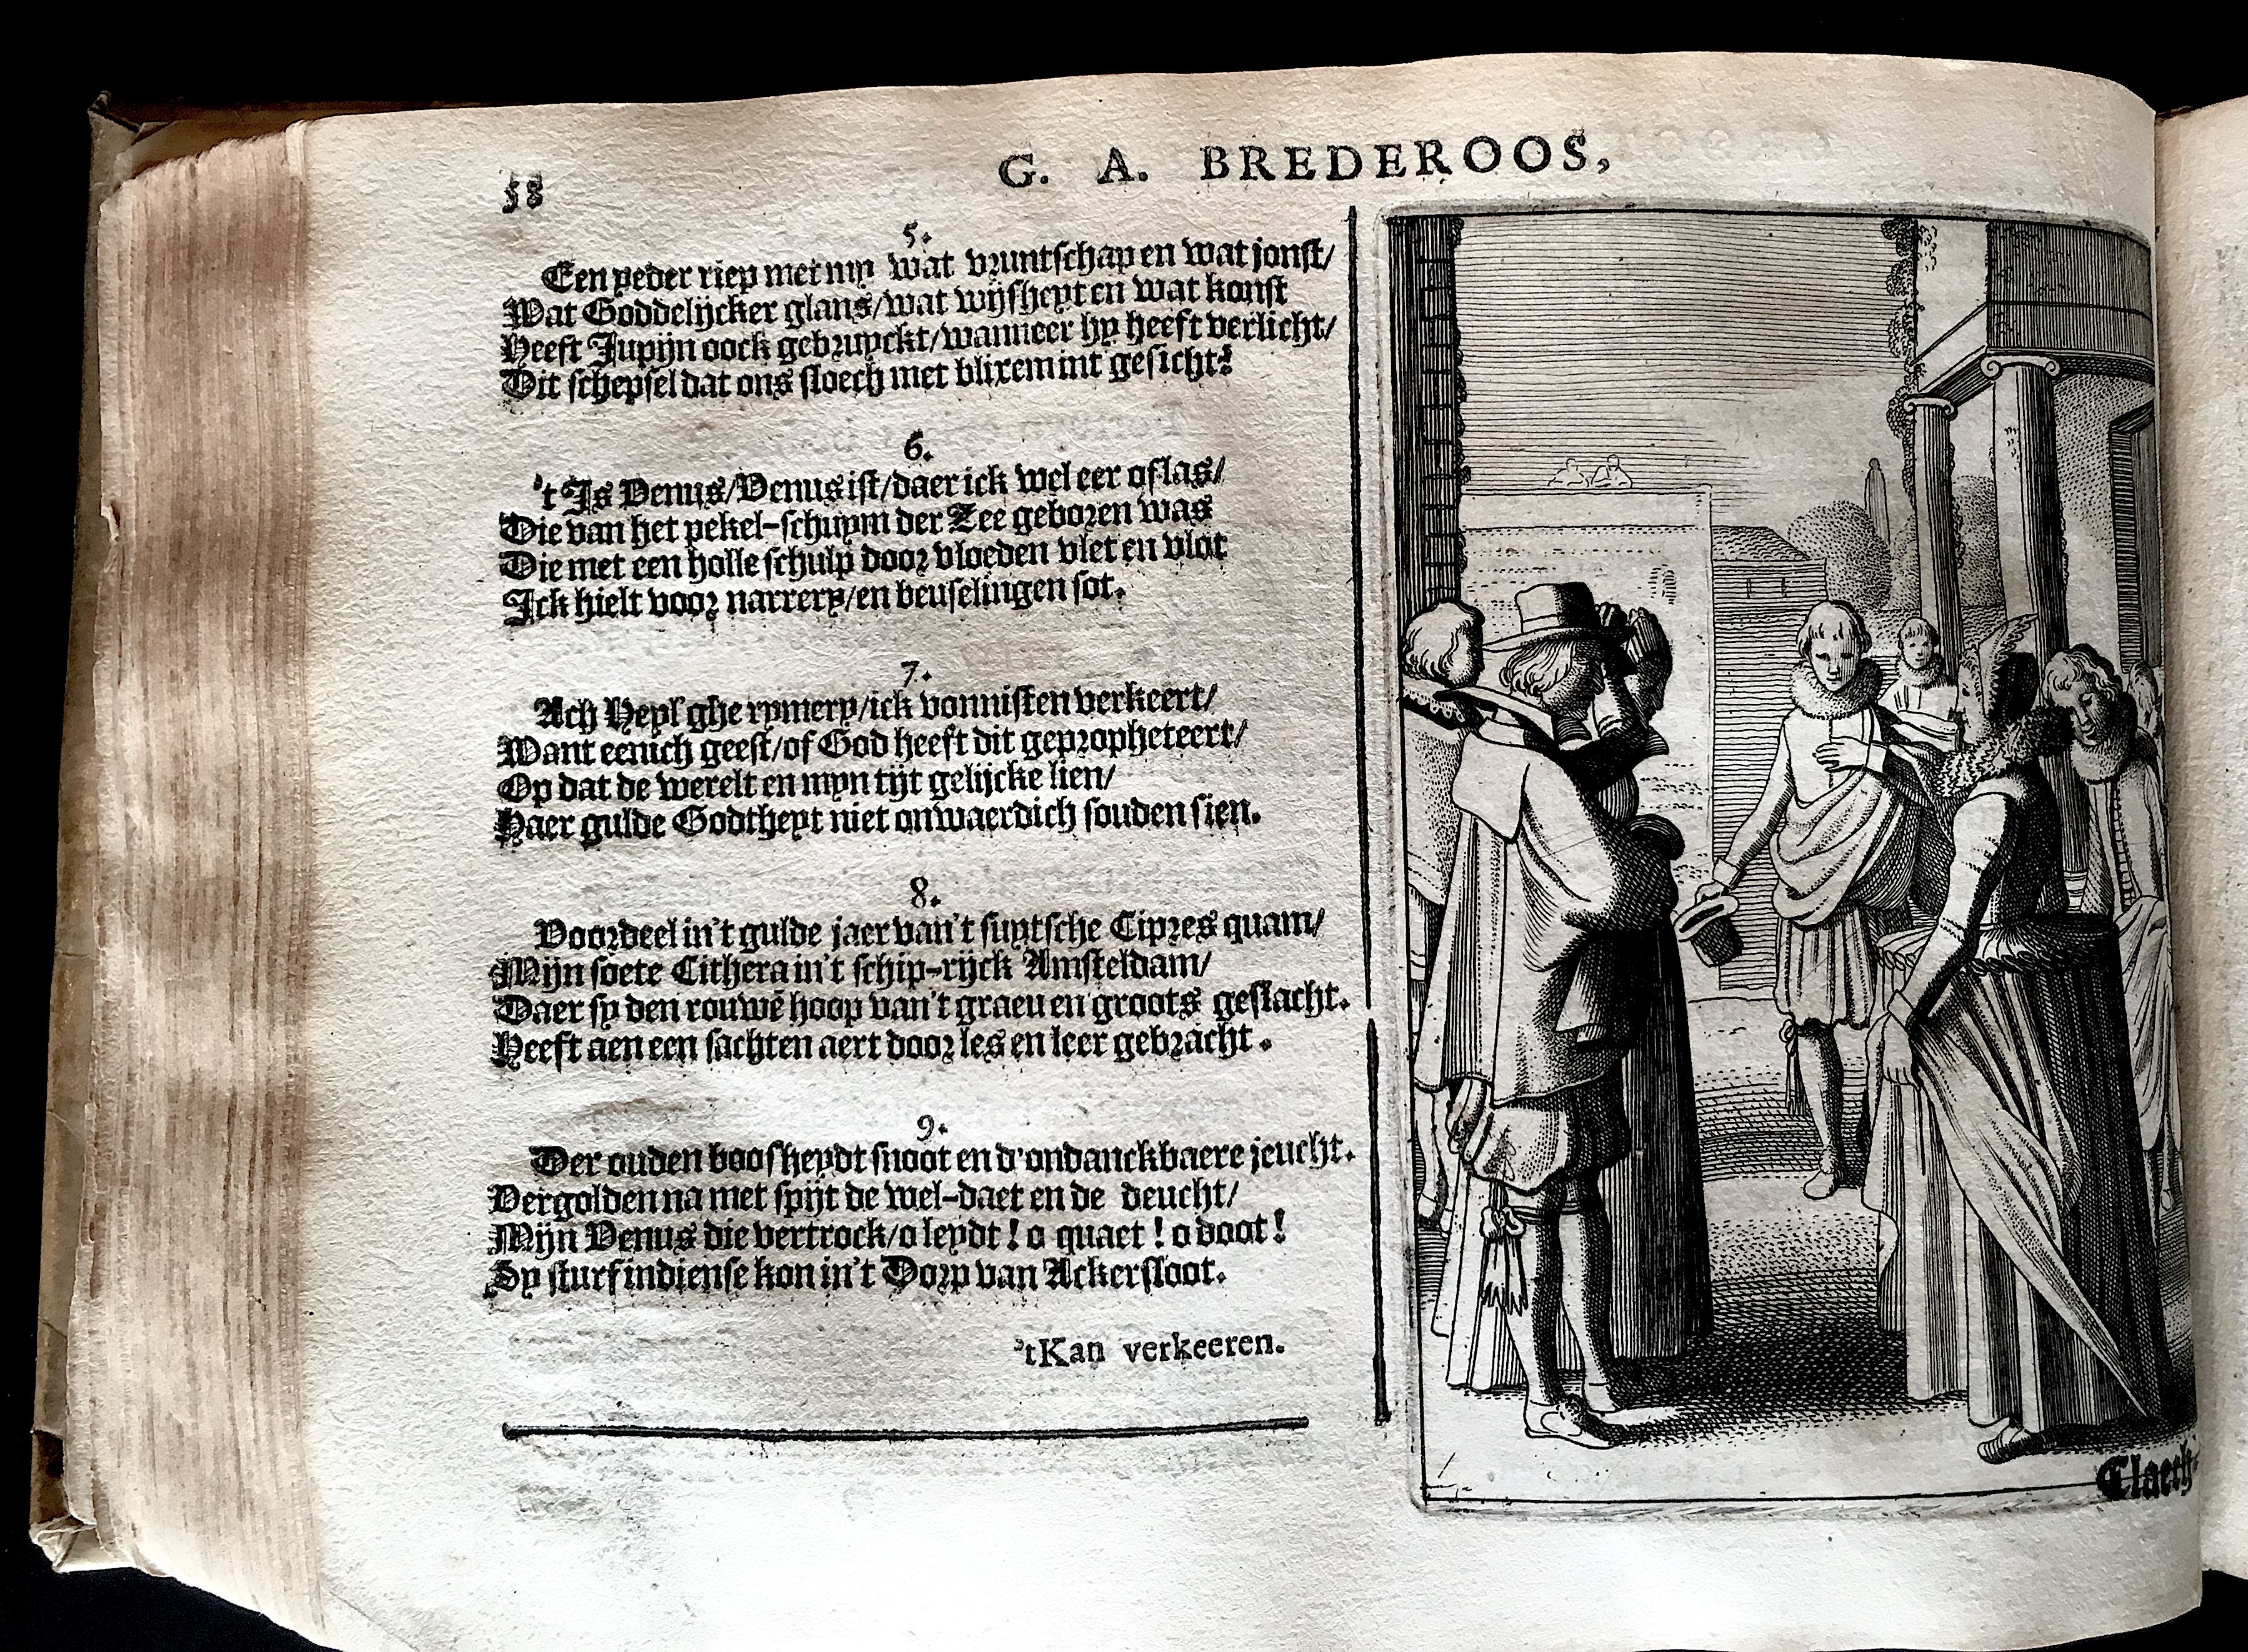 58
G. A. BREDEROOS,
5.
Een yeder riep met my wat vruntschap en wat jonst/
Wat Goddelijcker glans/wat wijsheyt en wat konst
Heeft Jupijn oock gebruyckt/wanneer hy heeft verlicht/
Dit schepsel dat ons sloech met blixem int gesicht?
6.
't Is Venus/Venus ist/daer ick wel eer of las/
Die van het pekel-schuym der Zee geboren was
Die met een holle schulp door vloeden vlet en vlot
Ick hielt voor narrery/en beuselingen sot.
7.
Ach Heyl'ghe rymery/ick vonnisten verkeert/
Want eenich geest/of God heeft dit gepropheteert/
Op dat de werelt en myn tijt gelijcke lien/
Haer gulde Godtheyt niet onwaerdich souden sien.
8.
Voordeel in't gulde jaer van't suytsche Cipres quam/
Mijn soete Cithera in't schip-rijck Amsteldam/
Daer sy den rouwē hoop van't graeu en groots geslacht.
Heeft aen een sachten aert door les en leer gebracht.
9.
Der ouden boosheydt snoot en d'ondanckbaere jeucht.
Vergolden na met spijt de wel-daet en de deucht/
Mijn Venus die vertrock/o leydt! o quaet! o doot!
Sy sturf indiense kon in't Dorp van Ackersloot.
'tKan verkeeren.
Claeth